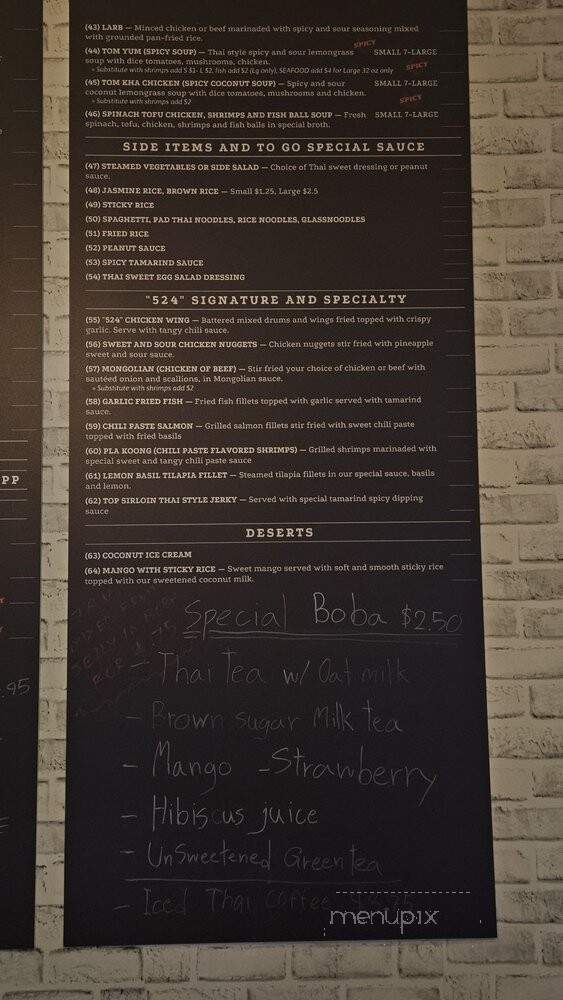 (43) LARB — Minced chicken or beef marinaded with spicy and sour seasoning mixed
with grounded pan-fried rice.
(44) TOM YUM (SPICY SOUP) — Thai style spicy and sour lemongrass SPICY SMALL 7-LARGE
soup with dice tomatoes, mushrooms, chicken.
» Substitute with shrimps add S $1- L $2, fish add $2 (Lg only), SEAFOOD add $4 for Large 32 oz only SPICY
(45) TOM KHA CHICKEN (SPICY COCONUT SOUP) — Spicy and sour SMALL 7-LARGE
coconut lemongrass soup with dice tomatoes, mushrooms and chicken.
» Substitute with shrimps add $2 SPICY
(46) SPINACH TOFU CHICKEN, SHRIMPS AND FISH BALL SOUP — Fresh SMALL 7-LARGE
spinach, tofu, chicken, shrimps and fish balls in special broth.
SIDE ITEMS AND TO GO SPECIAL SAUCE
(47) STEAMED VEGETABLES OR SIDE SALAD — Choice of Thai sweet dressing or peanut
sauce.
(48) JASMINE RICE, BROWN RICE — Small $1.25, Large $2.5
(49) STICKY RICE
(50) SPAGHETTI, PAD THAI NOODLES, RICE NOODLES, GLASSNOODLES
(51) FRIED RICE
(52) PEANUT SAUCE
(53) SPICY TAMARIND SAUCE
(54) THAI SWEET EGG SALAD DRESSING
"524" SIGNATURE AND SPECIALTY
(55) "524" CHICKEN WING — Battered mixed drums and wings fried topped with crispy
garlic. Serve with tangy chili sauce.
(56) SWEET AND SOUR CHICKEN NUGGETS — Chicken nuggets stir fried with pineapple
sweet and sour sauce.
(57) MONGOLIAN (CHICKEN OF BEEF) — Stir fried your choice of chicken or beef with
sautéed onion and scallions, in Mongolian sauce.
» Substitute with shrimps add $2
(58) GARLIC FRIED FISH — Fried fish fillets topped with garlic served with tamarind
sauce.
(59) CHILI PASTE SALMON — Grilled salmon fillets stir fried with sweet chili paste
topped with fried basils
(60) PLA KOONG (CHILI PASTE FLAVORED SHRIMPS) — Grilled shrimps marinaded with
special sweet and tangy chili paste sauce
(61) LEMON BASIL TILAPIA FILLET — Steamed tilapia fillets in our special sauce, basils
and lemon.
(62) TOP SIRLOIN THAI STYLE JERKY — Served with special tamarind spicy dipping
sauce
PP
DESERTS
(63) COCONUT ICE CREAM
(64) MANGO WITH STICKY RICE — Sweet mango served with soft and smooth sticky rice
topped with our sweetened coconut milk.
Special Boba $2.50
- Thai Tea w/ Oat milk
.95
- Brown sugar Milk tea
- Mango - Strawberry
- Hibiscus juice
- UnSweetened Green tea
- Iced Thai Coffee
menupix